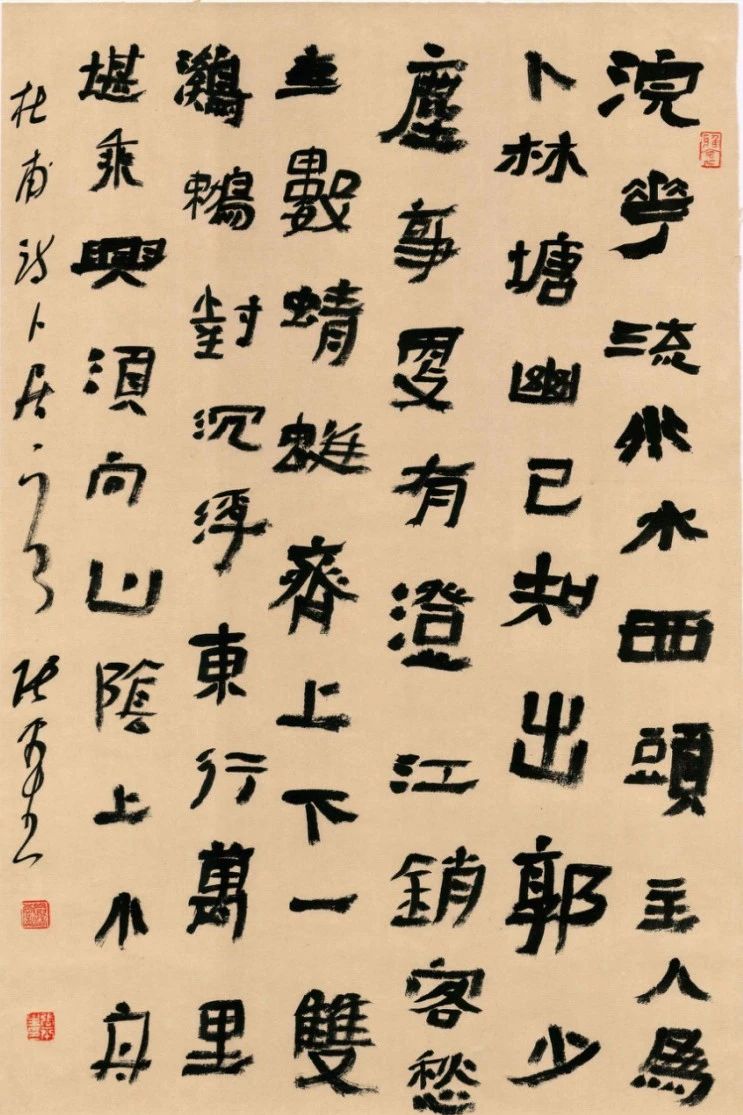 浣華流水水西頭主人為
卜林塘幽已知出郭少
塵事更有澄江銷客愁
無數蜻蜓齊上下一雙
鸂鶒對沉浮東行萬里
堪乘興須向山陰上小舟
杜甫詩卜居一首 張